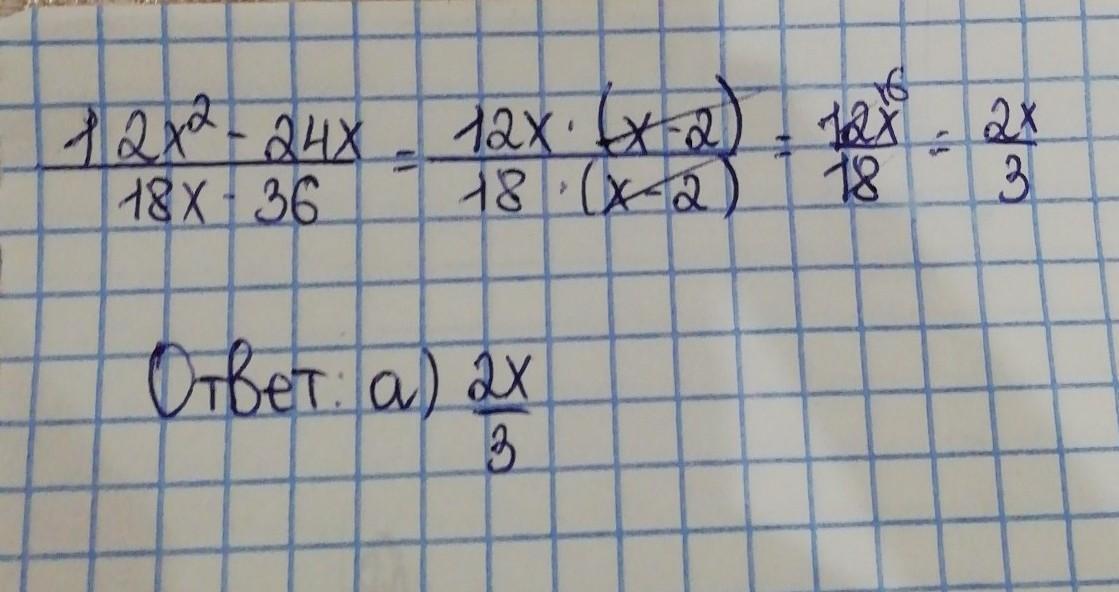 12x² - 24x / 18x - 36 = 12x · (x-2) / 18 · (x-2) = 12x / 18 \6 = 2x / 3
Ответ: а) 2x / 3